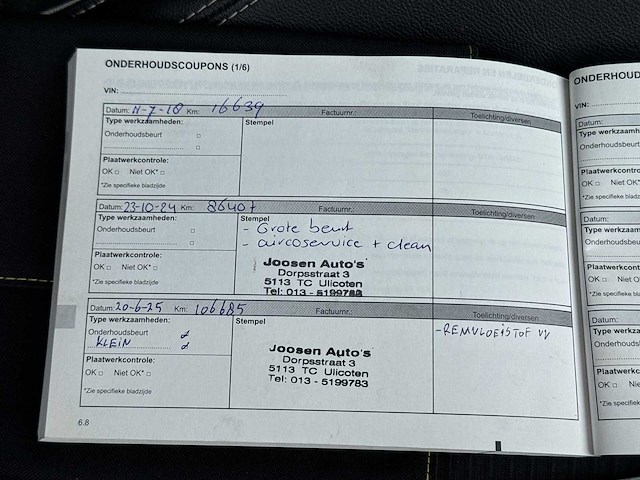 ONDERHOUDSCOUPONS (1/6)
VIN:
Datum: 11-7-18 Km: 16639 Factuurnr.: Toelichting/diversen
Type werkzaamheden: Stempel
Onderhoudsbeurt
Plaatwerkcontrole:
OK □ Niet OK* □
*Zie specifieke bladzijde
Datum: 23-10-24 Km: Factuurnr.: Toelichting/diversen
Type werkzaamheden: Stempel
Onderhoudsbeurt
- Grote beurt
- aircoservice + clean
Plaatwerkcontrole:
OK □ Niet OK* □
*Zie specifieke bladzijde
Joosen Auto's
Dorpsstraat 3
5113 TC Ulicoten
Tel: 013 - 5199783
Datum: 20-6-25 Km: 106685 Factuurnr.: Toelichting/diversen
Type werkzaamheden: Stempel
Onderhoudsbeurt
KLEIN
- REMVLOEISTOF VV
Plaatwerkcontrole:
OK □ Niet OK* □
*Zie specifieke bladzijde
Joosen Auto's
Dorpsstraat 3
5113 TC Ulicoten
Tel: 013 - 5199783
6.8
ONDERHOUD
VIN:
Datum:
Type werkzaamh
Onderhoudsbeu
Plaatwerkcontro
OK □ Niet
*Zie specifieke
Datum:
Type werkza
Onderhoudsbeu
Plaatwerkc
OK □ N
*Zie specifie
Datum:
Type werkza
Onderhouds
Plaatwerkc
OK □ Ni
*Zie specifie